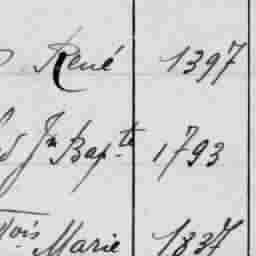 René 1397
Jn Bapte 1793
çois Marie 1837